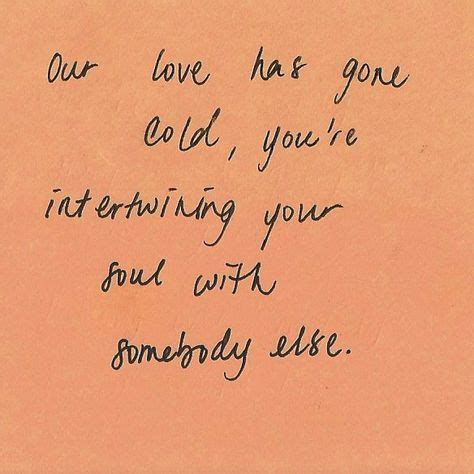 Our love has gone
cold, you're
intertwining your
soul with
somebody else.